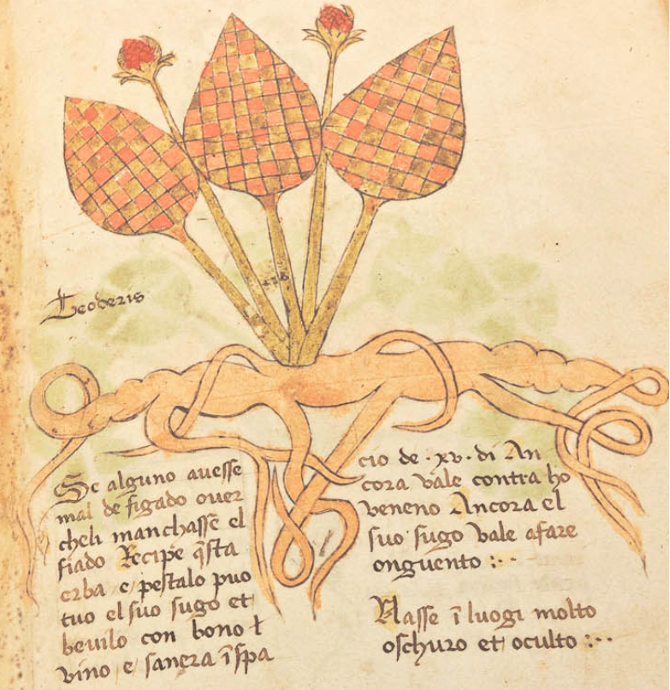 Leoderis
Se alguno auesse
mal de figado ouer
cheli manchasse el
fiado Recipe q̃sta
erba e pestalo puo
tuo el suo sugo et
beuilo con bono
vino e sanera ĩ spa
cio de · xv · di An
cora vale contra ho
veneno Ancora el
suo sugo vale afare
onguento :··
Nasse ĩ luogi molto
oschuro et oculto :··